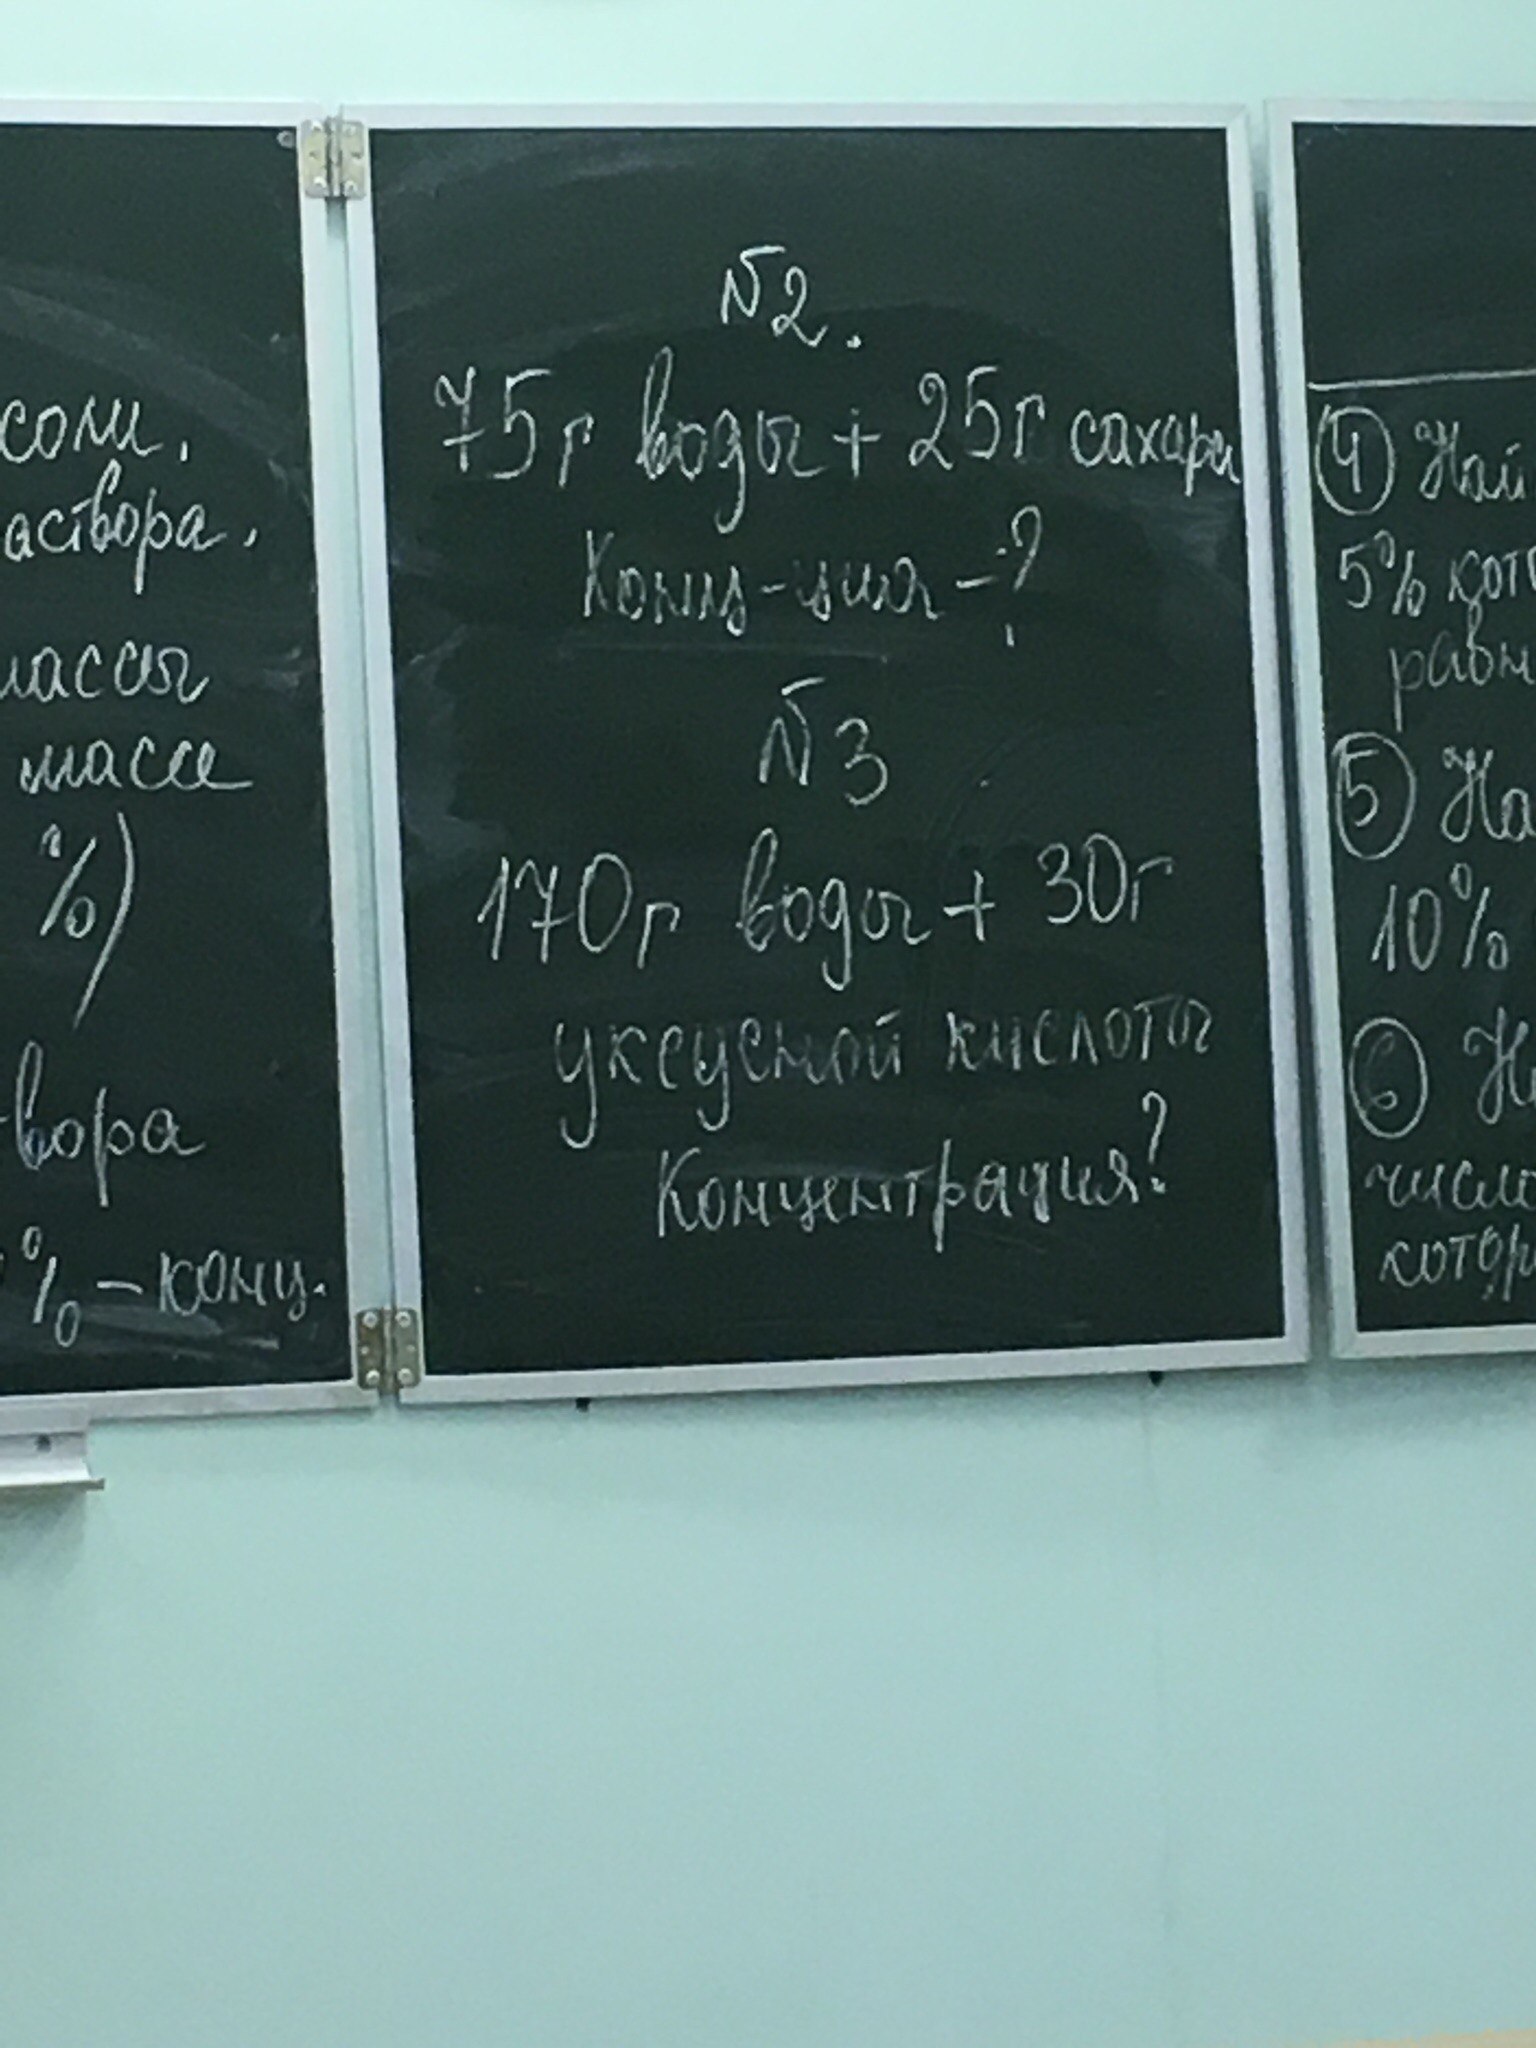 соли.
аствора.
массы
массе
%)
твора
% – конц.
№2.
75г воды + 25г сахара
Конц-ция – ?
№3
170г воды + 30г
уксусной кислоты
Концентрация?
④ Най
5% кот
равн
⑤ На
10%
⑥ Н
число
котор